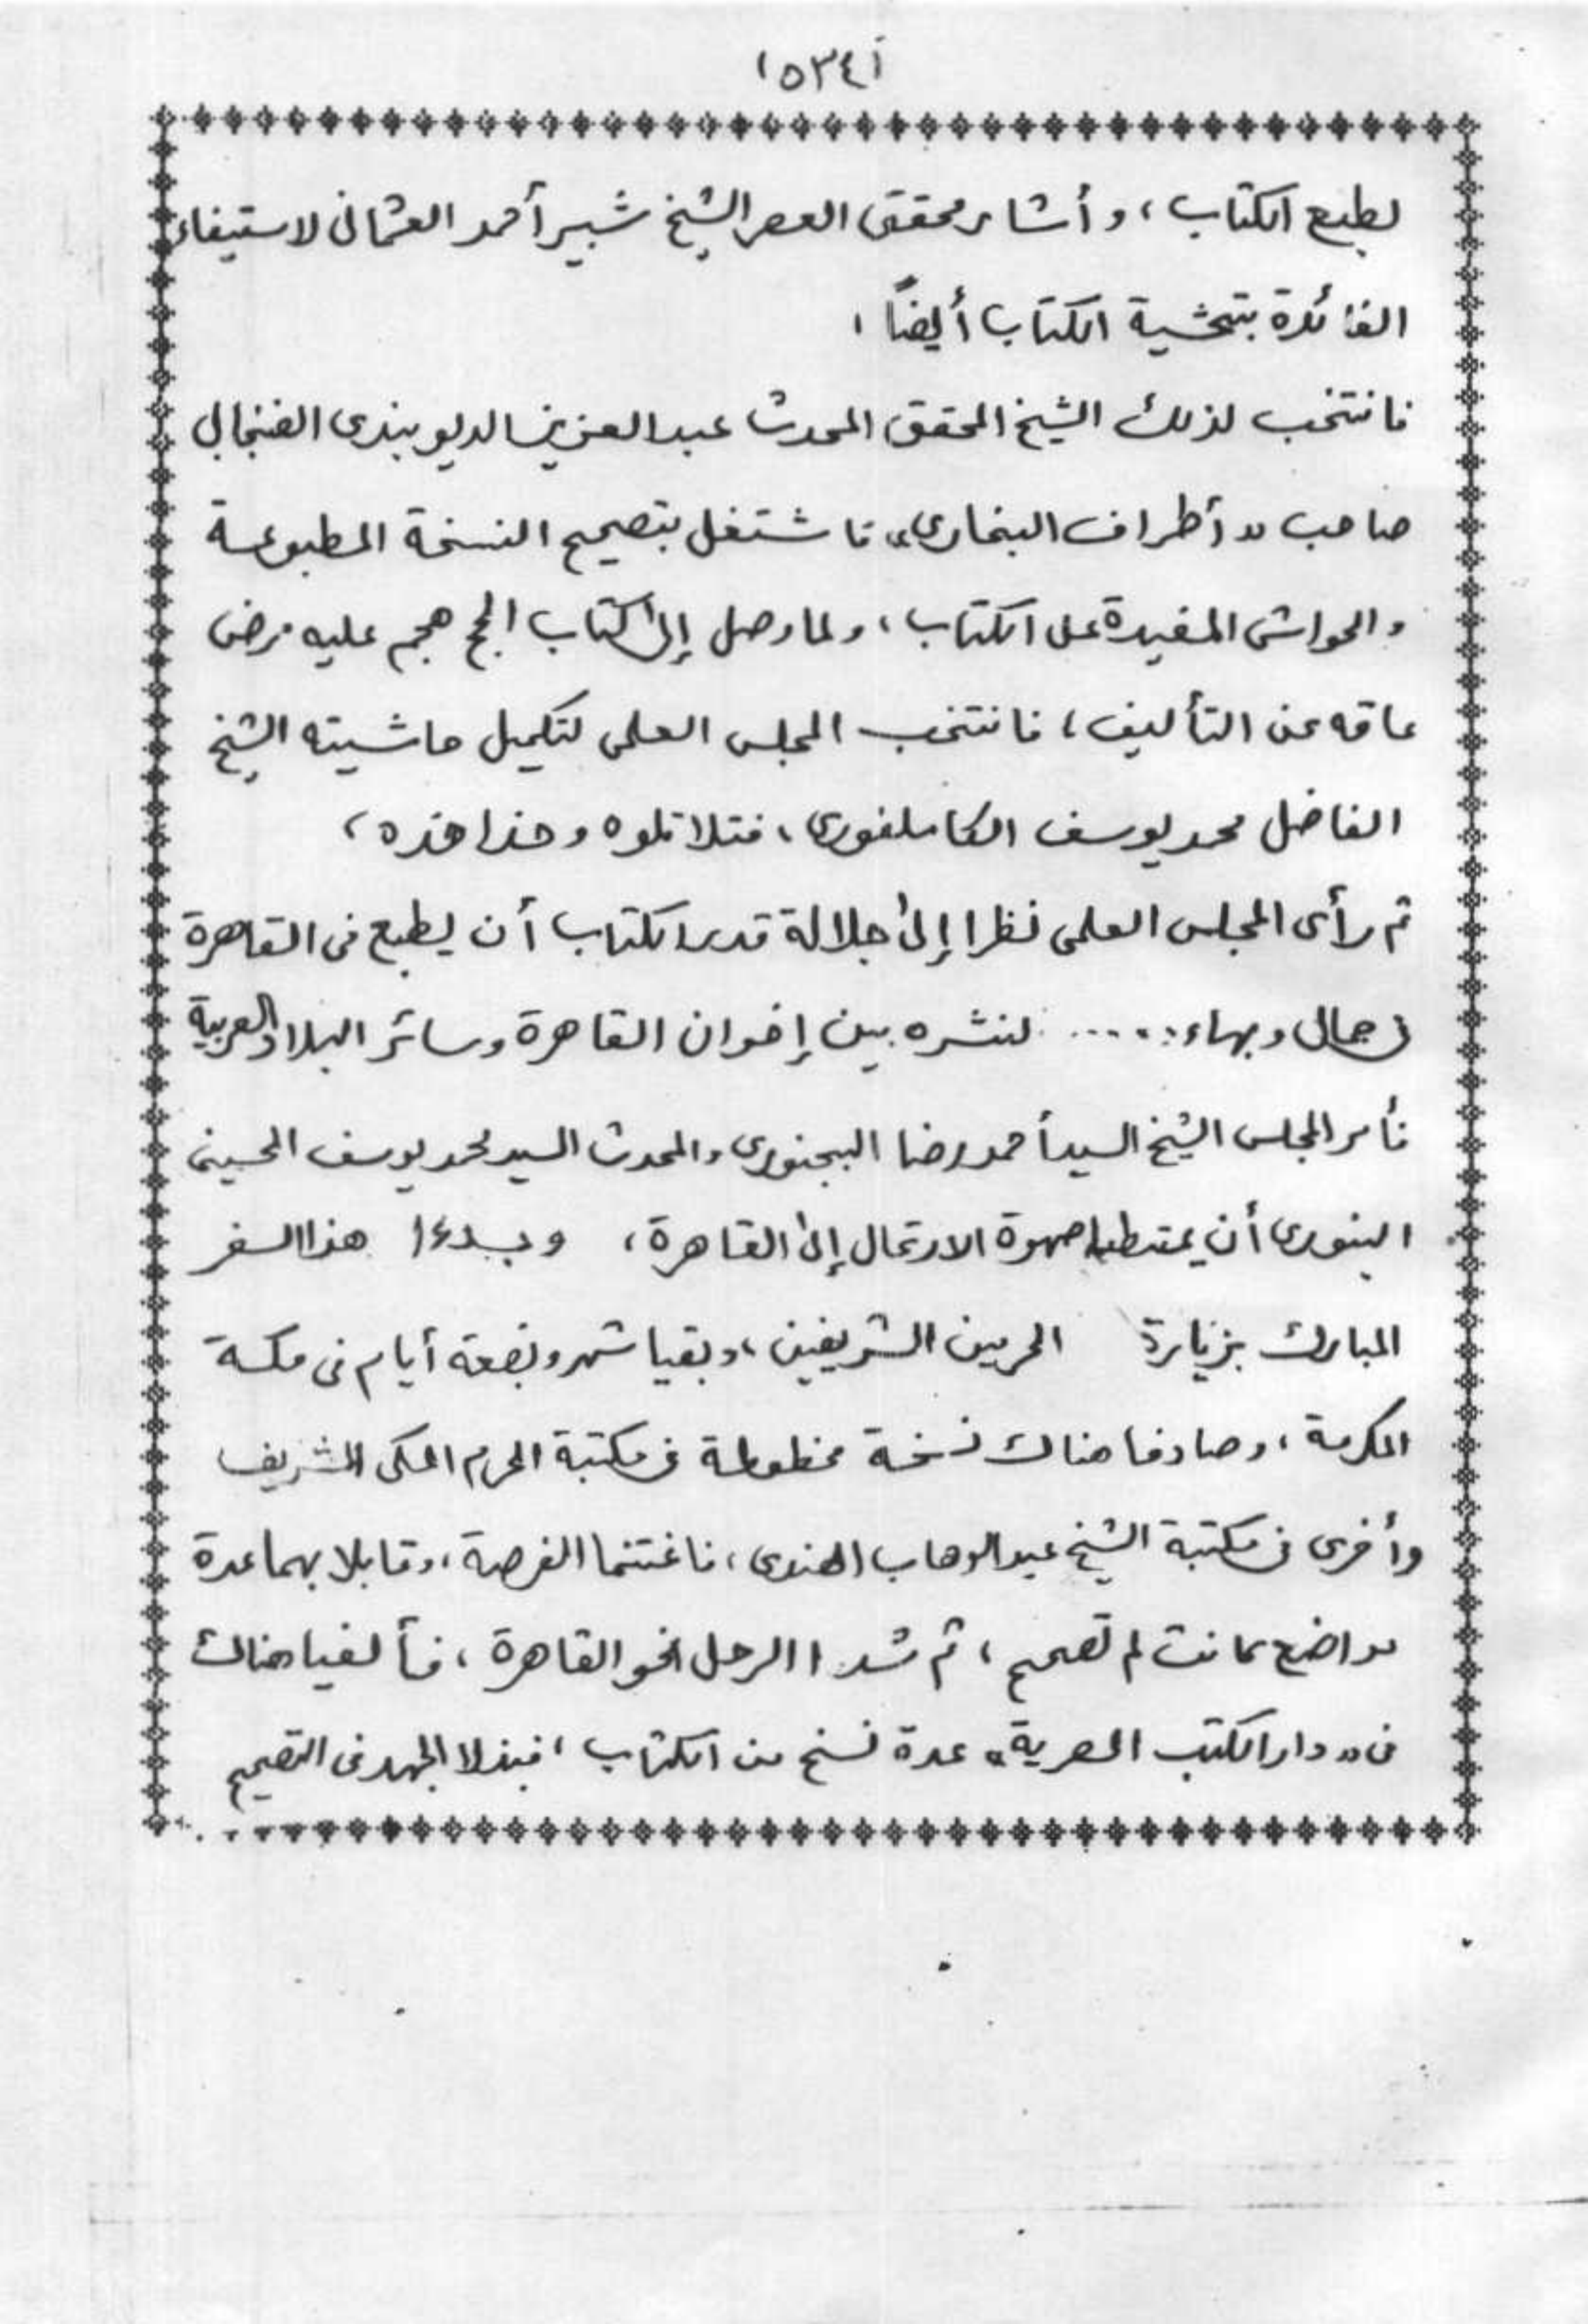 (٥٣٤)
لطبع الكتاب، وأشار محقق العصر الشيخ شبير أحمد العثمانى لاستيفاء
الفائدة بتحشية الكتاب أيضًا،
فانتخب لذلك الشيخ المحقق المحدث عبد العزيز الديوبندى الفنجابى
صاحب «أطراف البخارى» فاشتغل بتصحيح النسخة المطبوعة
والحواشى المفيدة على الكتاب، ولما وصل إلى كتاب الحج هجم عليه مرض
عاقه عن التأليف، فانتخب المجلس العلمى لتكميل حاشيته الشيخ
الفاضل محمد يوسف الكاملفورى، فتلا تلوه وحذا حذه،
ثم رأى المجلس العلمى نظرا إلى جلالة قدر الكتاب أن يطبع فى القاهرة
فى جمال وبهاء..... لنشره بين إخوان القاهرة وسائر البلاد العربية
فأمر المجلس الشيخ السيد أحمد رضا البجنورى والمحدث السيد محمد يوسف الحسينى
البنورى أن يمتطيا صهوة الارتحال إلى القاهرة، وبدءا هذا السفر
المبارك بزيارة الحرمين الشريفين، وبقيا شهر وبضعة أيام فى مكة
المكرمة، وصادفا هناك نسخة مخطوطة فى مكتبة الحرم المكى الشريف
وأخرى فى مكتبة الشيخ عبد الوهاب الهندى، فاغتنما الفرصة، وقابلا بهما عدة
مواضع كانت لم تصحح، ثم شدا الرحل نحو القاهرة، فألفيا هناك
فى «دار الكتب المصرية» عدة نسخ من الكتاب، فبذلا الجهد فى التصحيح